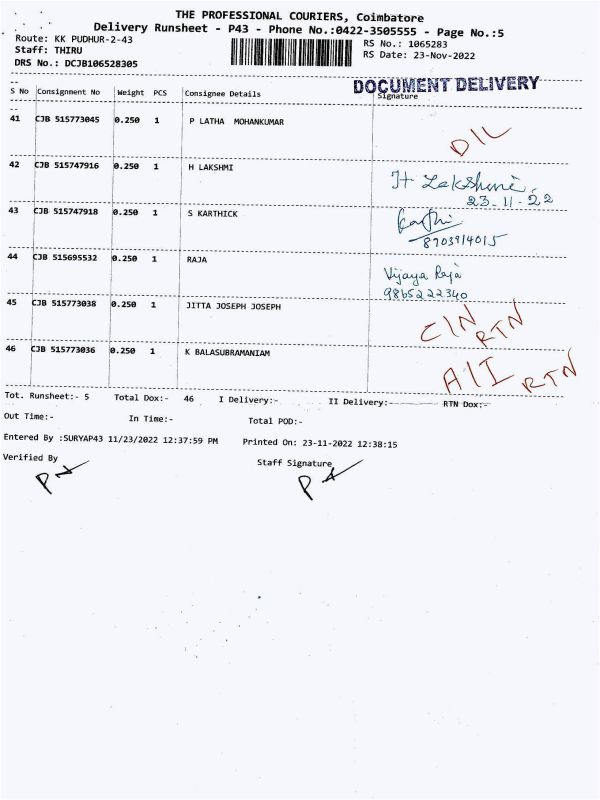 THE PROFESSIONAL COURIERS, Coimbatore
Delivery Runsheet - P43 - Phone No.:0422-3505555 - Page No.:5
Route: KK PUDHUR-2-43 RS No.: 1065283
Staff: THIRU RS Date: 23-Nov-2022
DRS No.: DCJB106528305
DOCUMENT DELIVERY
S No Consignment No Weight PCS Consignee Details Signature
41 CJB 515773045 0.250 1 P LATHA MOHANKUMAR D/L
42 CJB 515747916 0.250 1 H LAKSHMI H Lakshmi
23-11-22
43 CJB 515747918 0.250 1 S KARTHICK Karthi
8903914015
44 CJB 515695532 0.250 1 RAJA Vijaya Raja
9865222340
45 CJB 515773038 0.250 1 JITTA JOSEPH JOSEPH C/N RTN
46 CJB 515773036 0.250 1 K BALASUBRAMANIAM A/I RTN
Tot. Runsheet:- 5 Total Dox:- 46 I Delivery:- II Delivery:- RTN Dox:-
Out Time:- In Time:- Total POD:-
Entered By :SURYAP43 11/23/2022 12:37:59 PM Printed On: 23-11-2022 12:38:15
Verified By Staff Signature